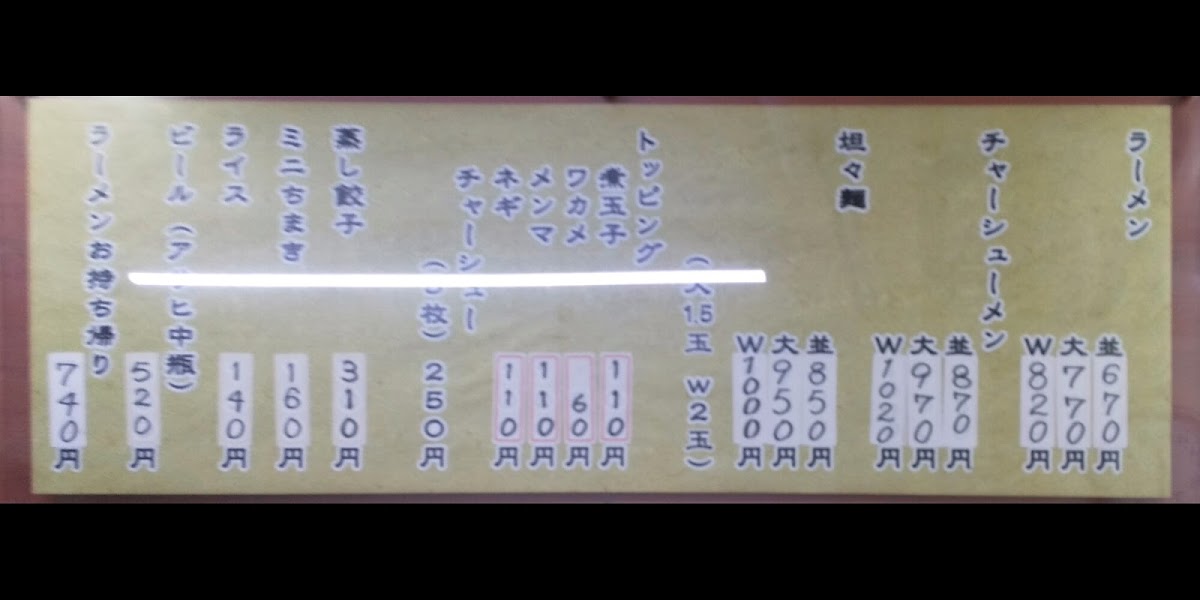 ラーメン
並670円
大770円
W820円
チャーシューメン
並870円
大970円
W1020円
坦々麺
並850円
大950円
W1000円
(大1.5玉 W2玉)
トッピング
煮玉子 110円
ワカメ 60円
メンマ 110円
ネギ 110円
チャーシュー
枚) 250円
蒸し餃子 310円
ミニちまき 160円
ライス 140円
ビール (アサヒ中瓶)
520円
ラーメンお持ち帰り
740円